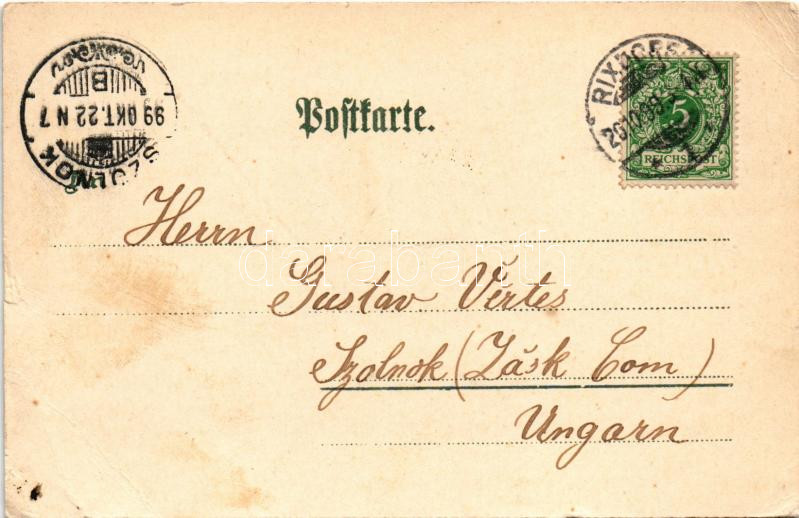 SZOLNOK
99 OKT. 22 N 7
B
RIXDORF
Postkarte.
5
REICHSPOST
An
Herrn
darabanth
Gustav Vértes
Szolnok (Zásk Com)
Ungarn